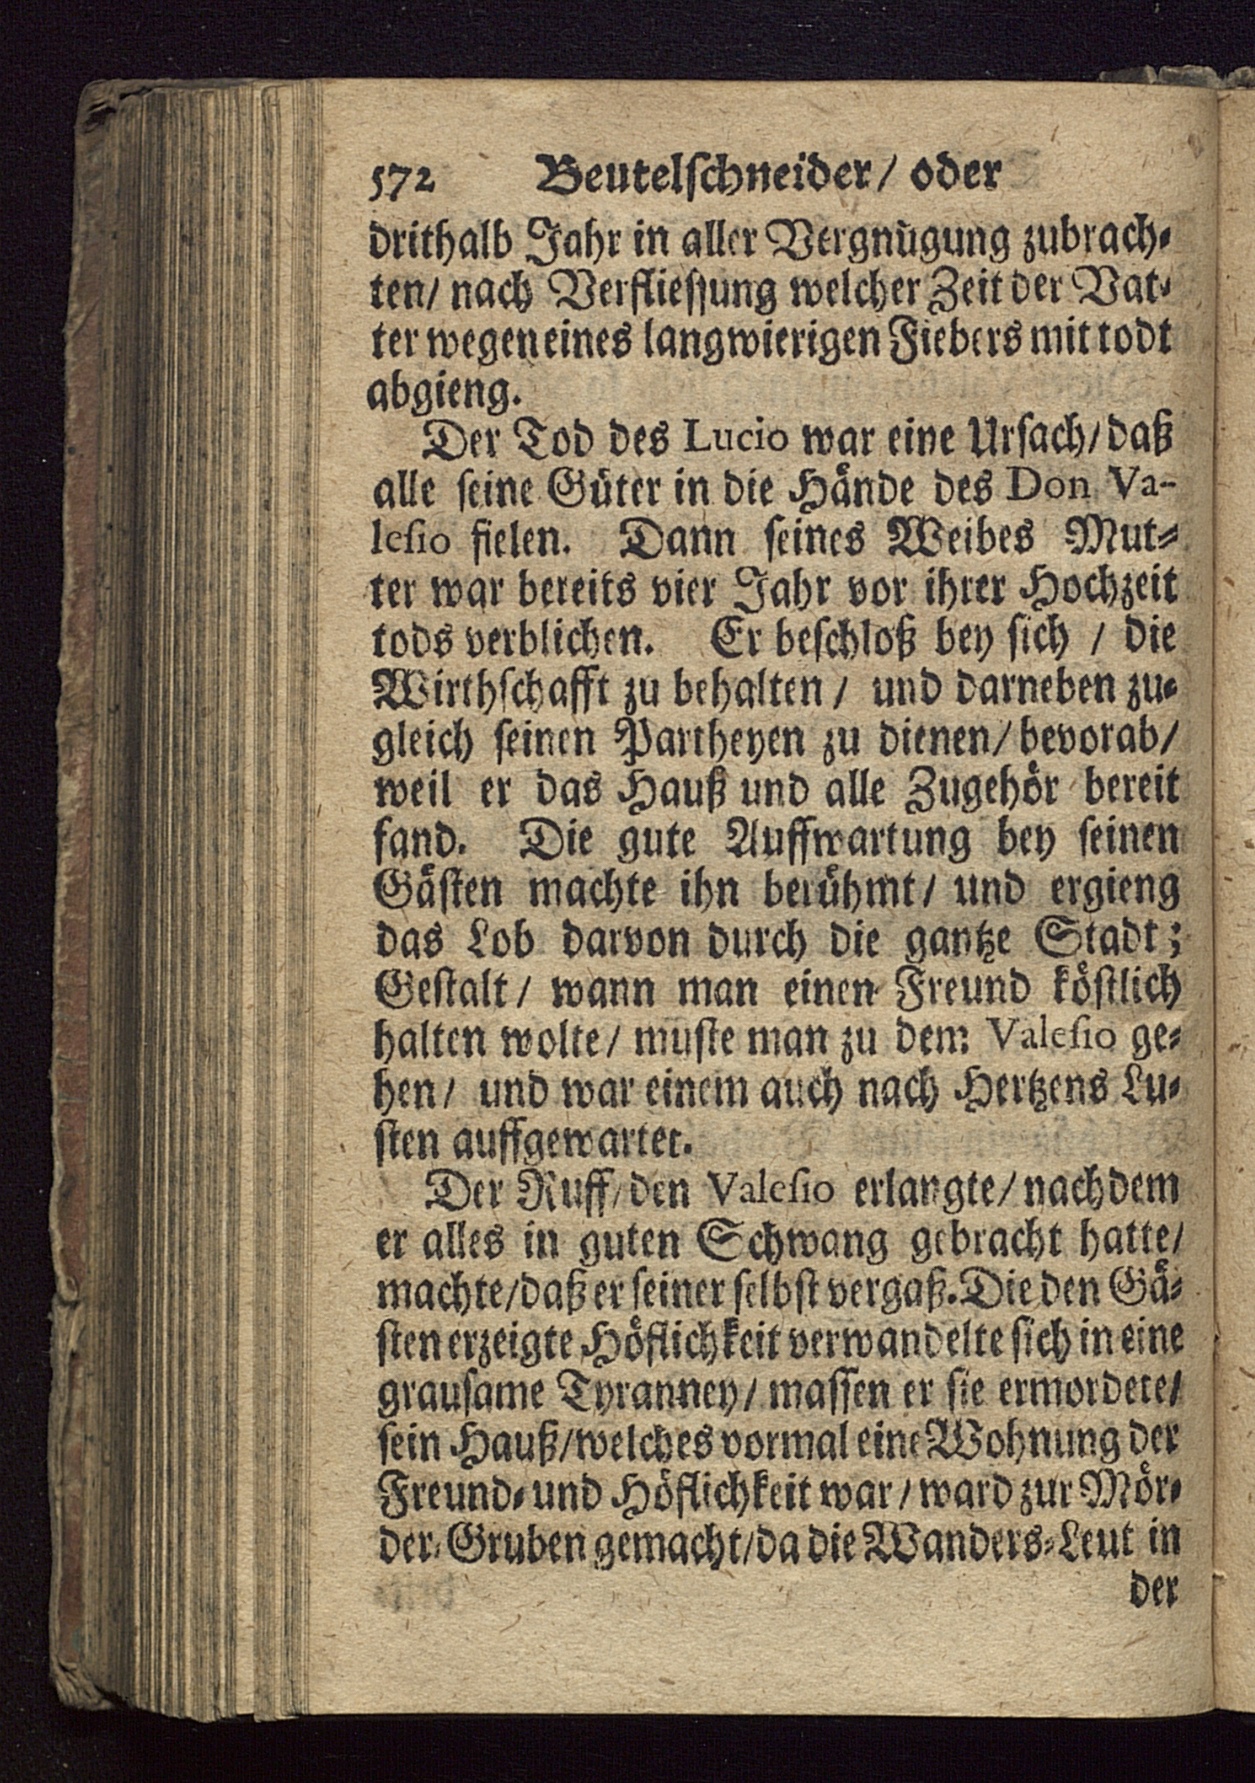 572 Beutelschneider/ oder
drithalb Jahr in aller Vergnügung zubrach-
ten/ nach Verfliessung welcher Zeit der Vat-
ter wegen eines langwierigen Fiebers mit todt
abgieng.
Der Tod des Lucio war eine Ursach/ daß
alle seine Güter in die Hände des Don Va-
lesio fielen. Dann seines Weibes Mut-
ter war bereits vier Jahr vor ihrer Hochzeit
tods verblichen. Er beschloß bey sich / die
Wirthschafft zu behalten / und darneben zu-
gleich seinen Partheyen zu dienen/ bevorab/
weil er das Hauß und alle Zugehör bereit
fand. Die gute Auffwartung bey seinen
Gästen machte ihn berühmt/ und ergieng
das Lob darvon durch die gantze Stadt;
Gestalt/ wann man einen Freund köstlich
halten wolte/ muste man zu dem Valesio ge-
hen/ und war einem auch nach Hertzens Lu-
sten auffgewartet.
Der Ruff/ den Valesio erlangte/ nachdem
er alles in guten Schwang gebracht hatte/
machte/ daß er seiner selbst vergaß. Die den Gä-
sten erzeigte Höflichkeit verwandelte sich in eine
grausame Tyranney/ massen er sie ermordete/
sein Hauß/ welches vormal eine Wohnung der
Freund- und Höflichkeit war/ ward zur Mör-
der-Gruben gemacht/ da die Wanders-Leut in
der